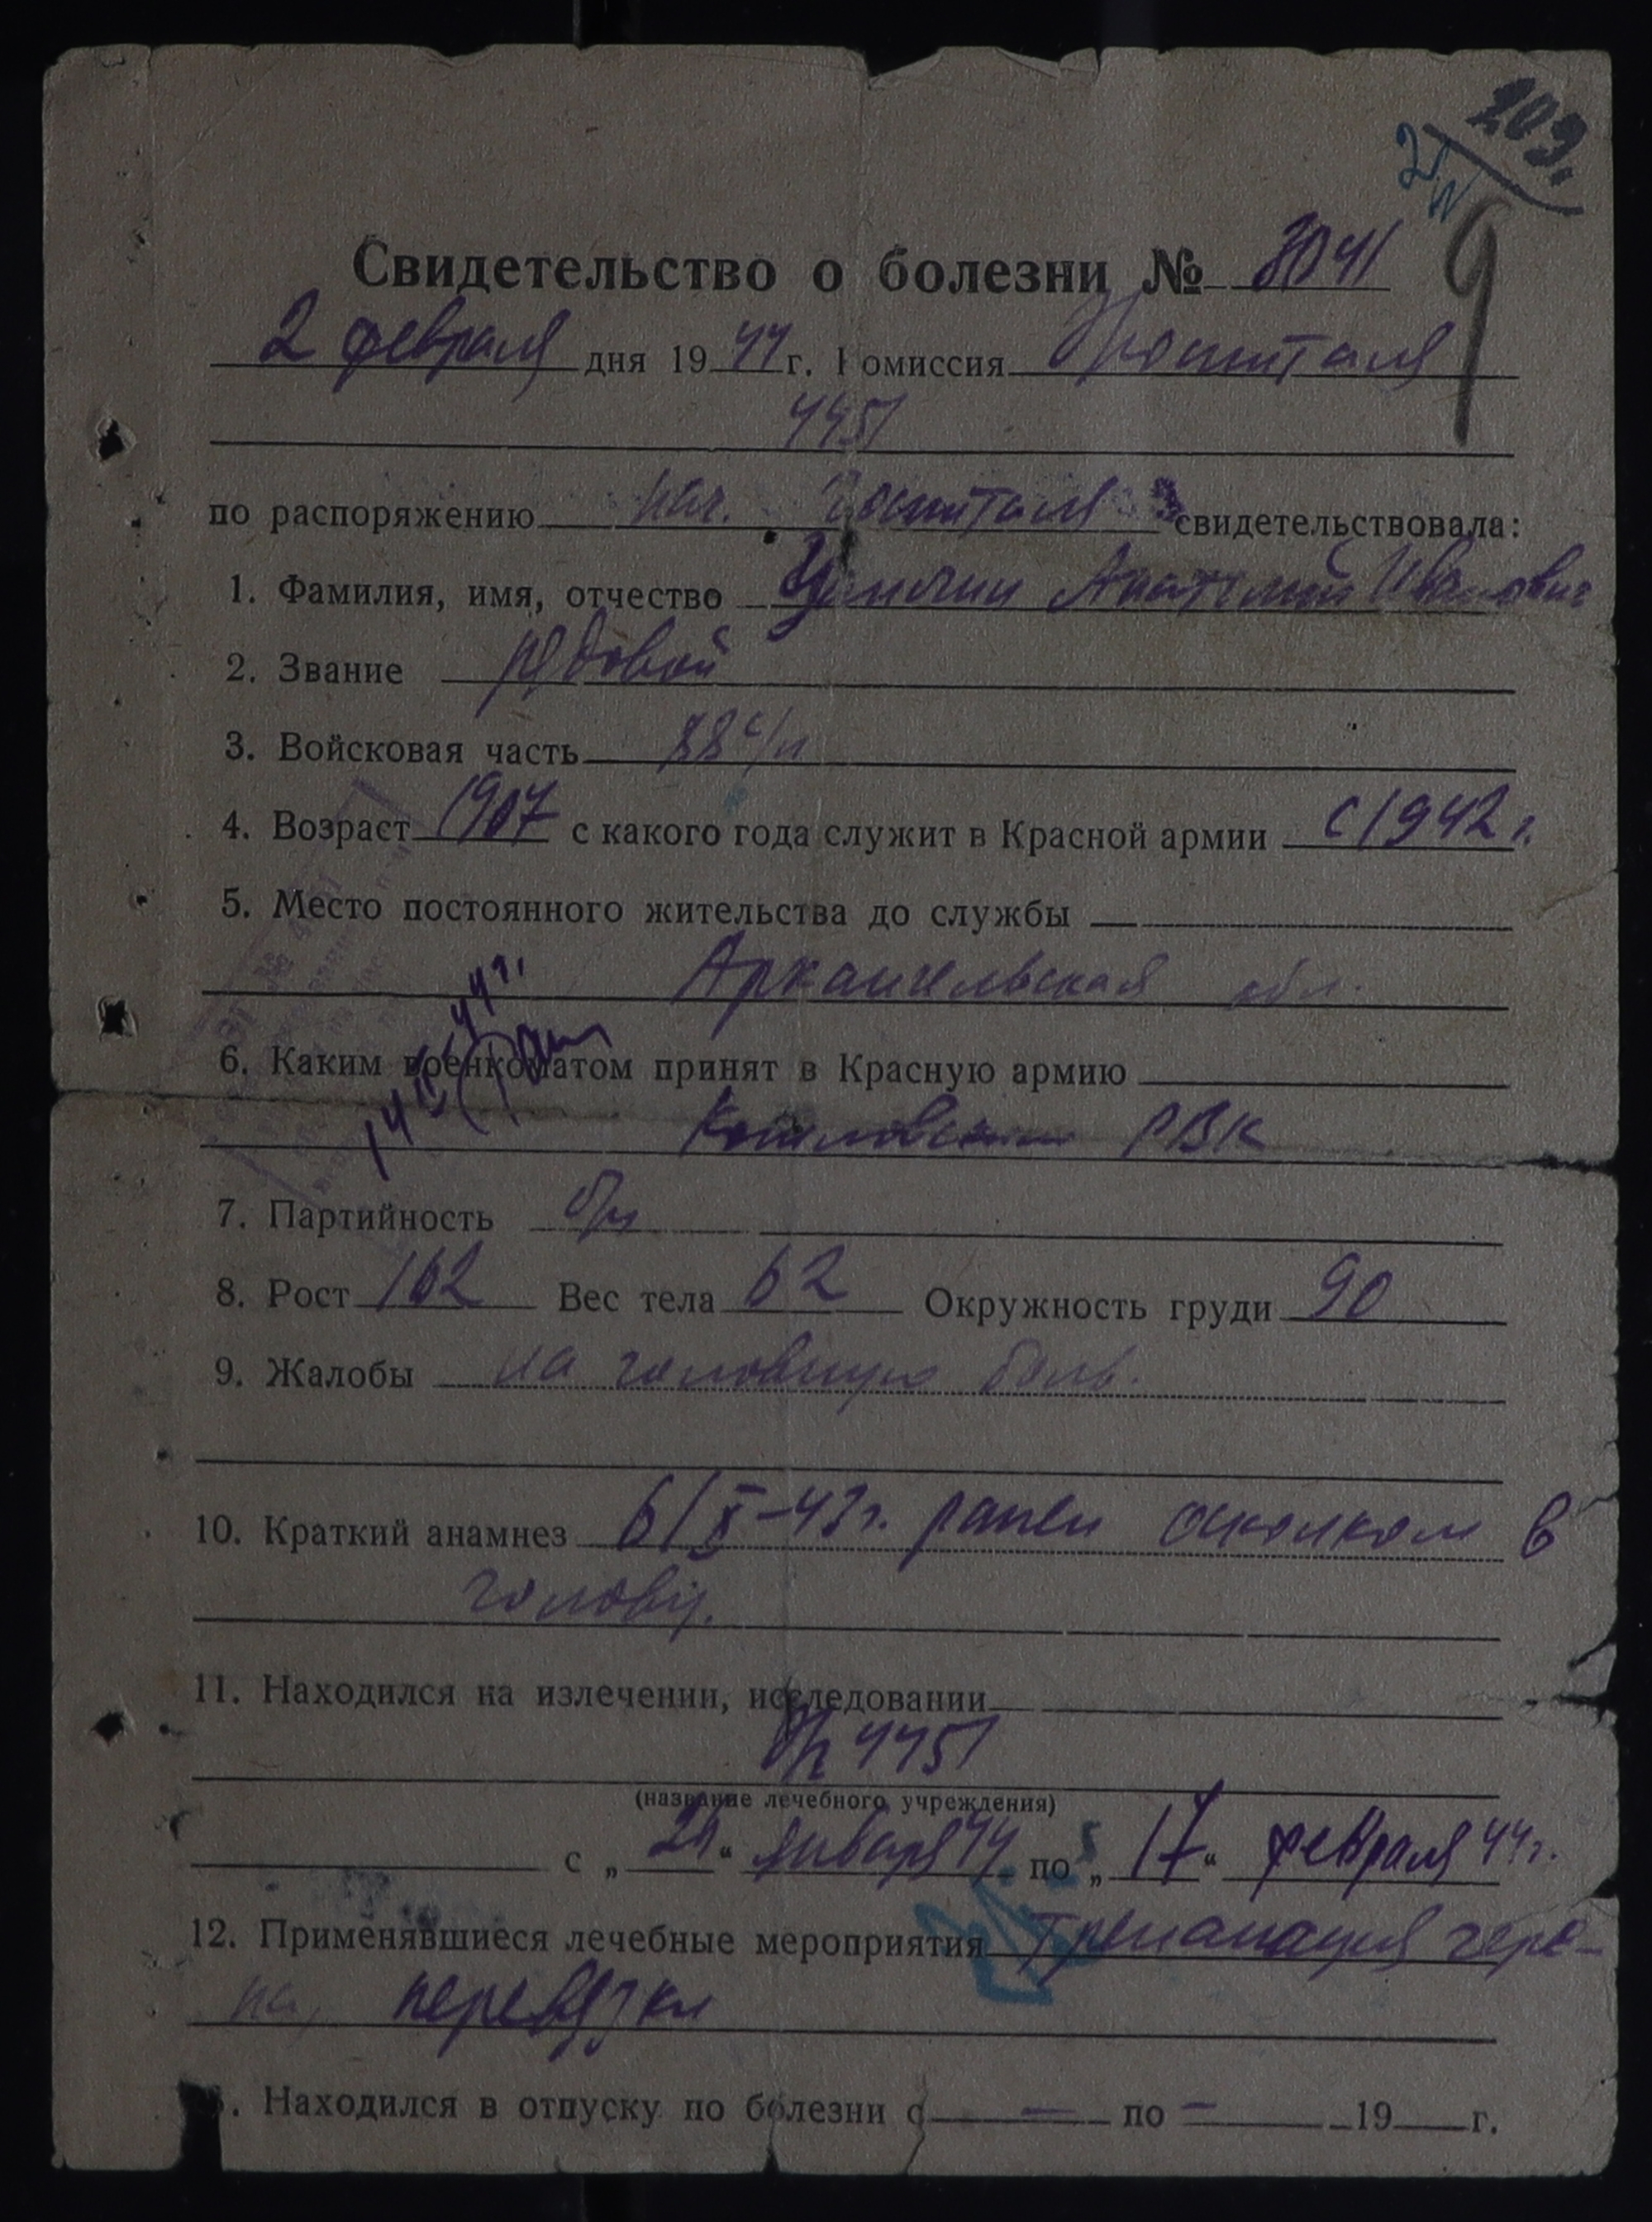 209.
9
Свидетельство о болезни №
2 февраля дня 1944 г. Комиссия Госпиталя
4451
по распоряжению нач. госпиталя свидетельствовала:
1. Фамилия, имя, отчество Анатолий Иванович
2. Звание рядовой
3. Войсковая часть 88 с/п
4. Возраст 1907 с какого года служит в Красной армии с 1942 г.
5. Место постоянного жительства до службы
Архангельская обл.
6. Каким военкоматом принят в Красную армию
РВК
7. Партийность б/п
8. Рост 162 Вес тела 62 Окружность груди 90
9. Жалобы на головную боль.
10. Краткий анамнез 6/X-43 г. ранен осколком в
голову.
11. Находился на излечении, исследовании
4451
(название лечебного учреждения)
с „ “ января 44 по „17“ февраля 44 г.
12. Применявшиеся лечебные мероприятия Трепанация чере-
па, перевязки
. Находился в отпуску по болезни с — по — 19 г.